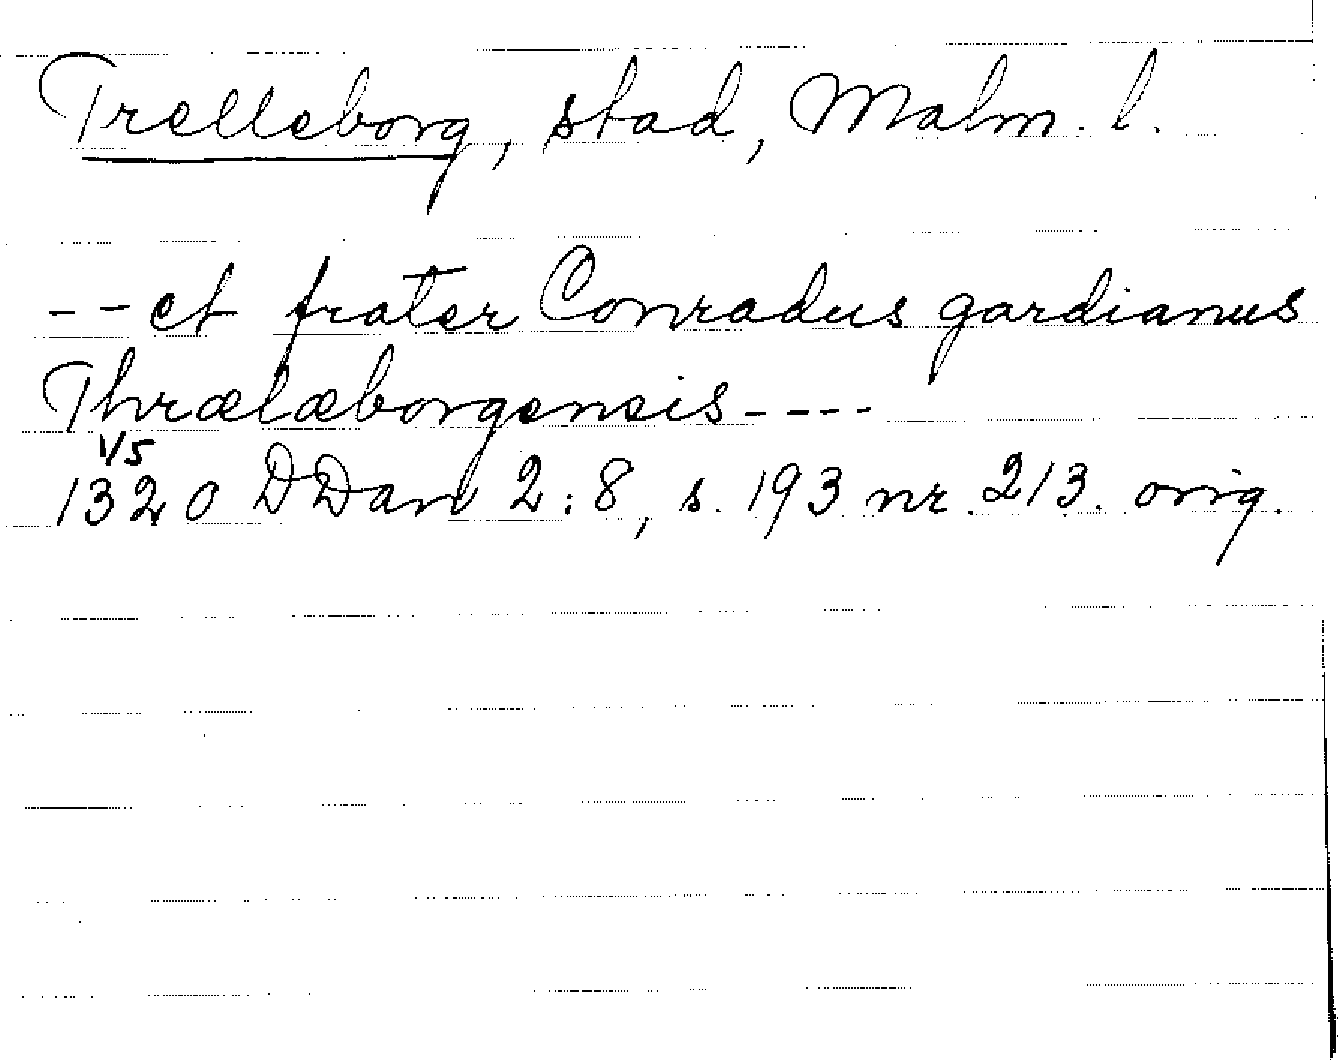 Trelleborg, stad, Malm. l.
-- et frater Conradus gardianus
Thrælæborgensis ----
1/5
1320 DDan 2:8, s. 193 nr. 213. orig.